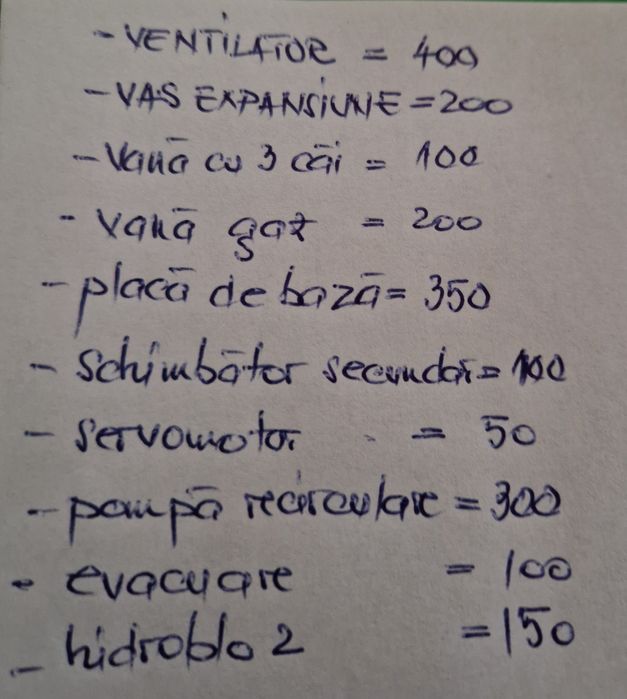 - VENTILATOR = 400
- VAS EXPANSIUNE = 200
- Vană cu 3 căi = 100
- Vană gaz = 200
- placă de bază = 350
- schimbător secundar = 100
- servomotor = 50
- pompă recirculare = 300
- evacuare = 100
- hidroblo 2 = 150